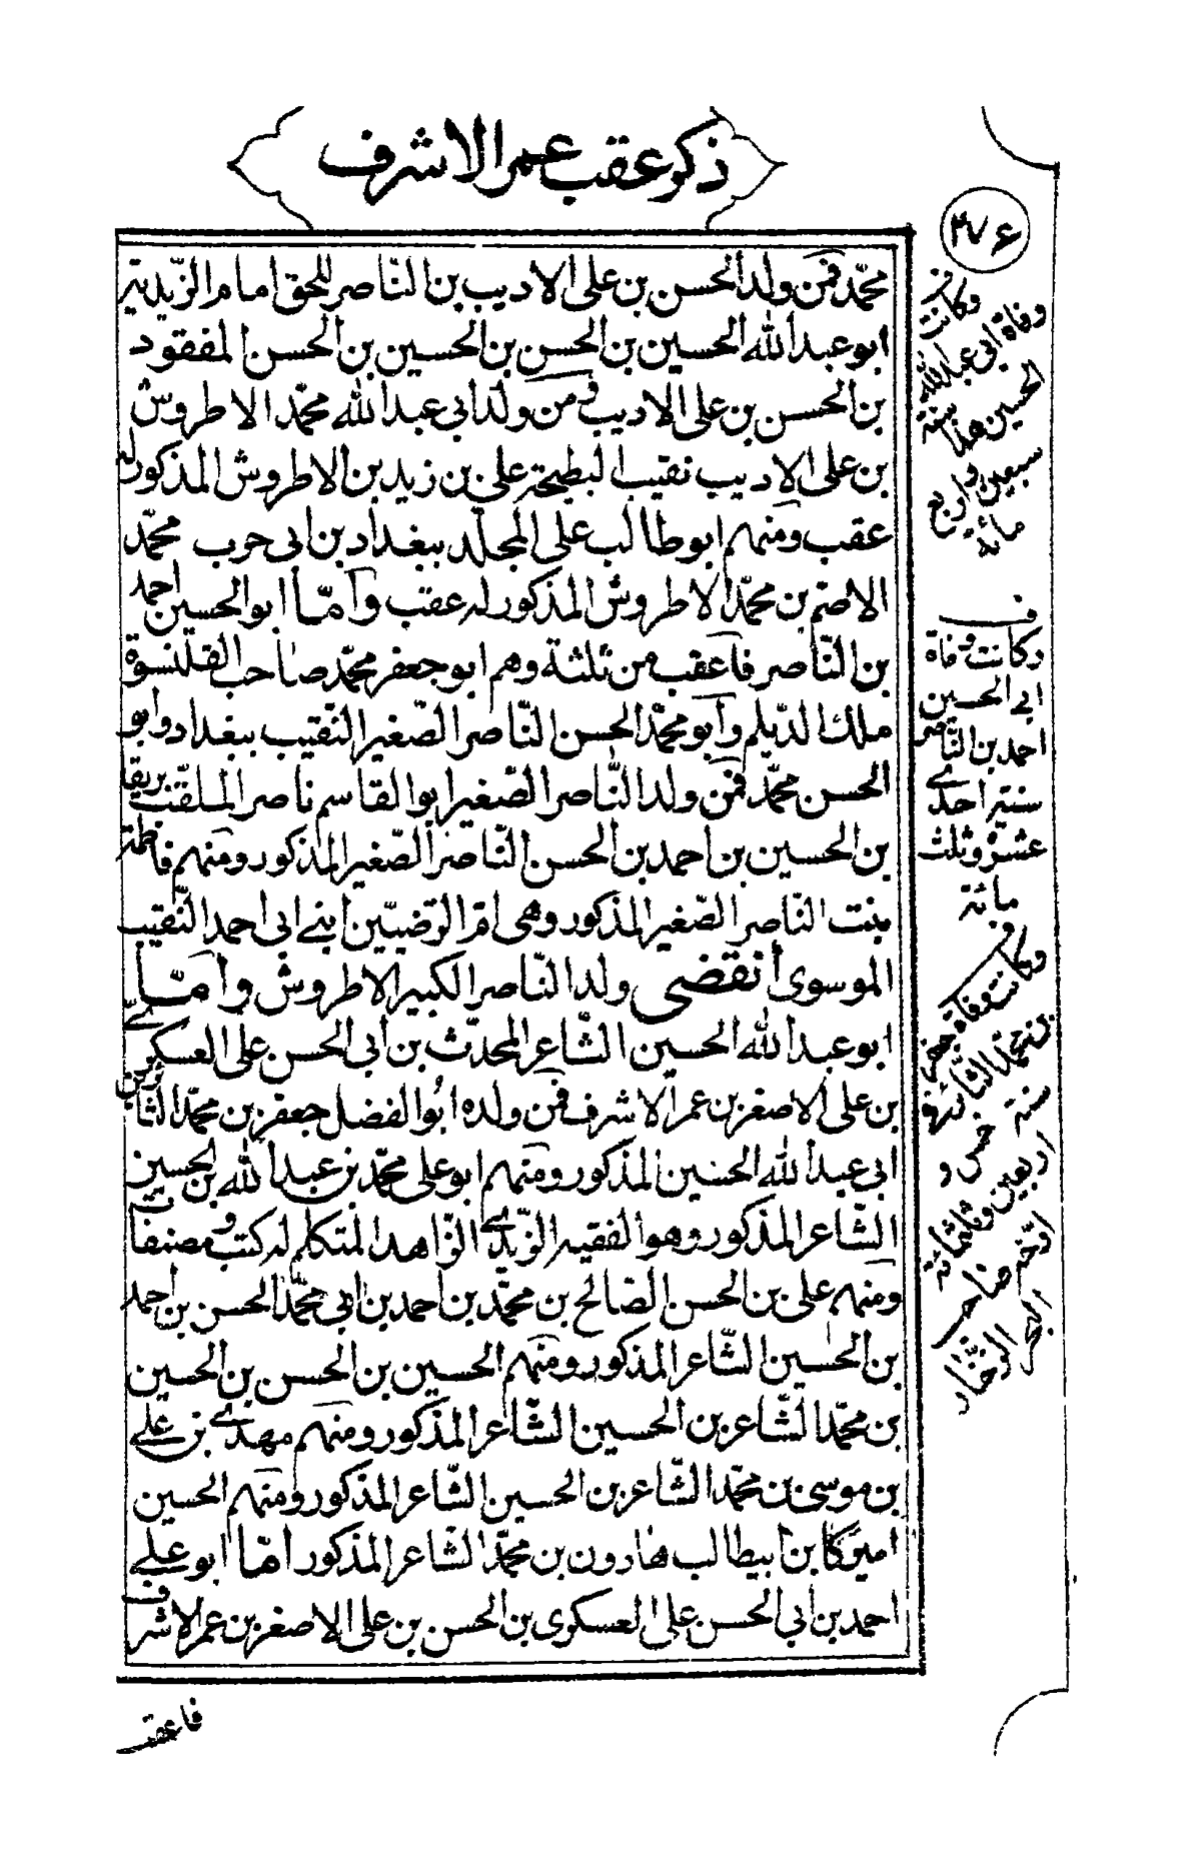 ذكر عقب عمر الاشرف
٢٧۶
محمّد فمن ولد الحسن بن على الاديب بن النّاصر للحق امام الزّيدية
ابو عبد الله الحسين بن الحسن بن الحسين بن الحسن المفقود
بن الحسن بن على الاديب ومن ولد ابى عبد الله محمّد الاطروش
بن على الاديب نقيب البطيحة على بن زيد بن الاطروش المذكور له
عقب ومنهم ابو طالب على المجلّد ببغداد بن ابى حرب محمّد
الاصّم بن محمّد الاطروش المذكور له عقب وامّا ابو الحسين احمد
بن النّاصر فاعقب من ثلثة وهم ابو جعفر محمّد صاحب القلنسوة
ملك الدّيلم وابو محمّد الحسن النّاصر الصّغير النّقيب ببغداد وابو
الحسن محمّد فمن ولد النّاصر الصّغير ابو القاسم ناصر الملقّب بريقا
بن الحسين بن احمد بن الحسن النّاصر الصّغير المذكور ومنهم فاطمة
بنت النّاصر الصّغير المذكور وهى امّ الرّضيّين ابنى ابى احمد النّقيب
الموسوى انقضى ولد النّاصر الكبير الاطروش وامّا
ابو عبد الله الحسين الشّاعر المحدّث بن ابى الحسن على العسكرى
بن على الاصغر بن عمر الاشرف فمن ولده ابو الفضل جعفر بن محمّد الثّائر بن
ابى عبد الله الحسين المذكور ومنهم ابو على محمّد بن عبد الله بن الحسين
الشّاعر المذكور وهو الفقيه الزّيدى الزّاهد المتكلم له كتب ومصنفات
ومنهم على بن الحسن الصّالح بن محمّد بن احمد بن ابى محمّد الحسن بن احمد
بن الحسين الشّاعر المذكور ومنهم الحسين بن الحسن بن الحسين
بن محمّد الشّاعر بن الحسين الشّاعر المذكور ومنهم مهدى بن على
بن موسى بن محمّد الشّاعر بن الحسين الشّاعر المذكور ومنهم الحسين
اميركا بن ابيطالب هارون بن محمّد الشّاعر المذكور امّا ابو على
احمد بن ابى الحسن على العسكرى بن الحسن بن على الاصغر بن عمر الاشرف
فاعقب
وكانت
وفاة ابى عبد الله
الحسين هذا سنة
سبعين واربع
مائة
وكانت وفاة
ابى الحسين
احمد بن النّاصر
سنة احدى
عشر وثلث
مائة
وكانت وفاة جعفر
بن محمّد الثّائر فى
سنة خمس و
اربعين وثلثمائة
ارّخه صاحب
البحر الزّخّار